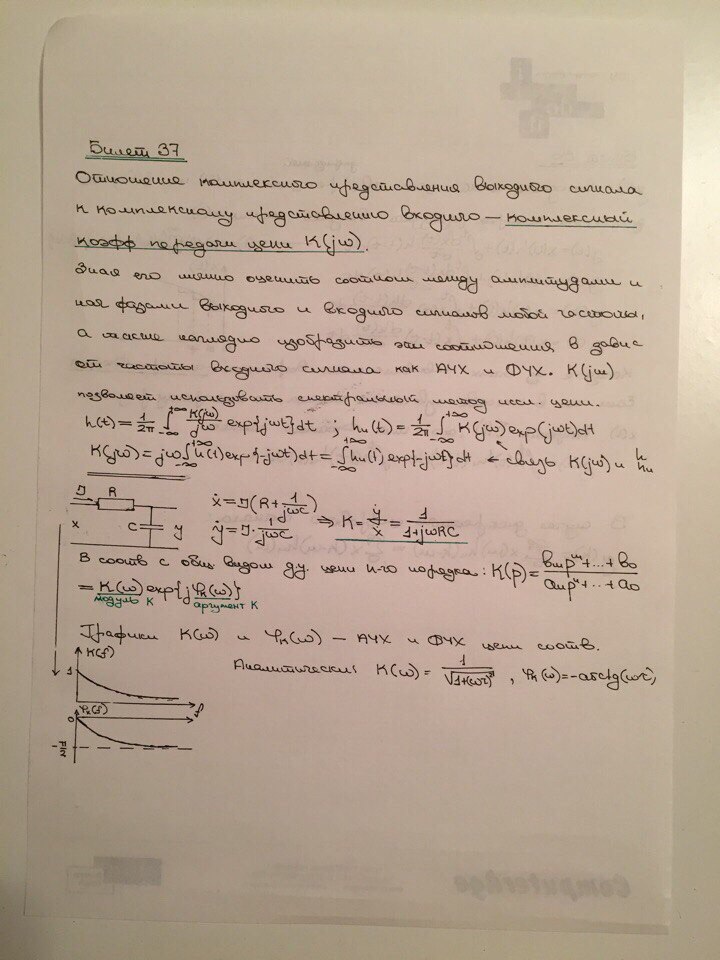 Билет 37
Отношение комплексного представления выходного сигнала
к комплексному представлению входного — комплексный
коэфф передачи цепи K(jω).
Зная его можно оценить соотнош между амплитудами и
нач фазами выходного и входного сигналов любой частоты,
а также наглядно изобразить эти соотношения в завис
от частоты входного сигнала как АЧХ и ФЧХ. K(jω)
позволяет использовать спектральный метод иссл. цепи.
h(t) = 1/2π ∫_{-∞}^{+∞} K(jω)/jω exp{jωt}dt ; hи(t) = 1/2π ∫_{-∞}^{+∞} K(jω)exp(jωt)dt
K(jω) = jω ∫_{-∞}^{+∞} h(t)exp{-jωt}dt = ∫_{-∞}^{+∞} hи(t)exp{-jωt}dt ← связь K(jω) и h hи
J R
x C y
ẋ = J(R + 1/jωC)
ẏ = J · 1/jωC ⇒ K = ẏ/ẋ = 1/(1+jωRC)
В соотв с общ видом ду. цепи n-го порядка: K(p) = (bmp^m + ... + b0)/(anp^n + ... + a0)
= K(ω) exp{jφk(ω)}
модуль K аргумент K
Графики K(ω) и φk(ω) — АЧХ и ФЧХ цепи соотв.
Аналитически: K(ω) = 1/√(1+(ωτ)²), φk(ω) = -arctg(ωτ)
K(f)
1
f
φk(f)
0
-π/2
ComputerAge